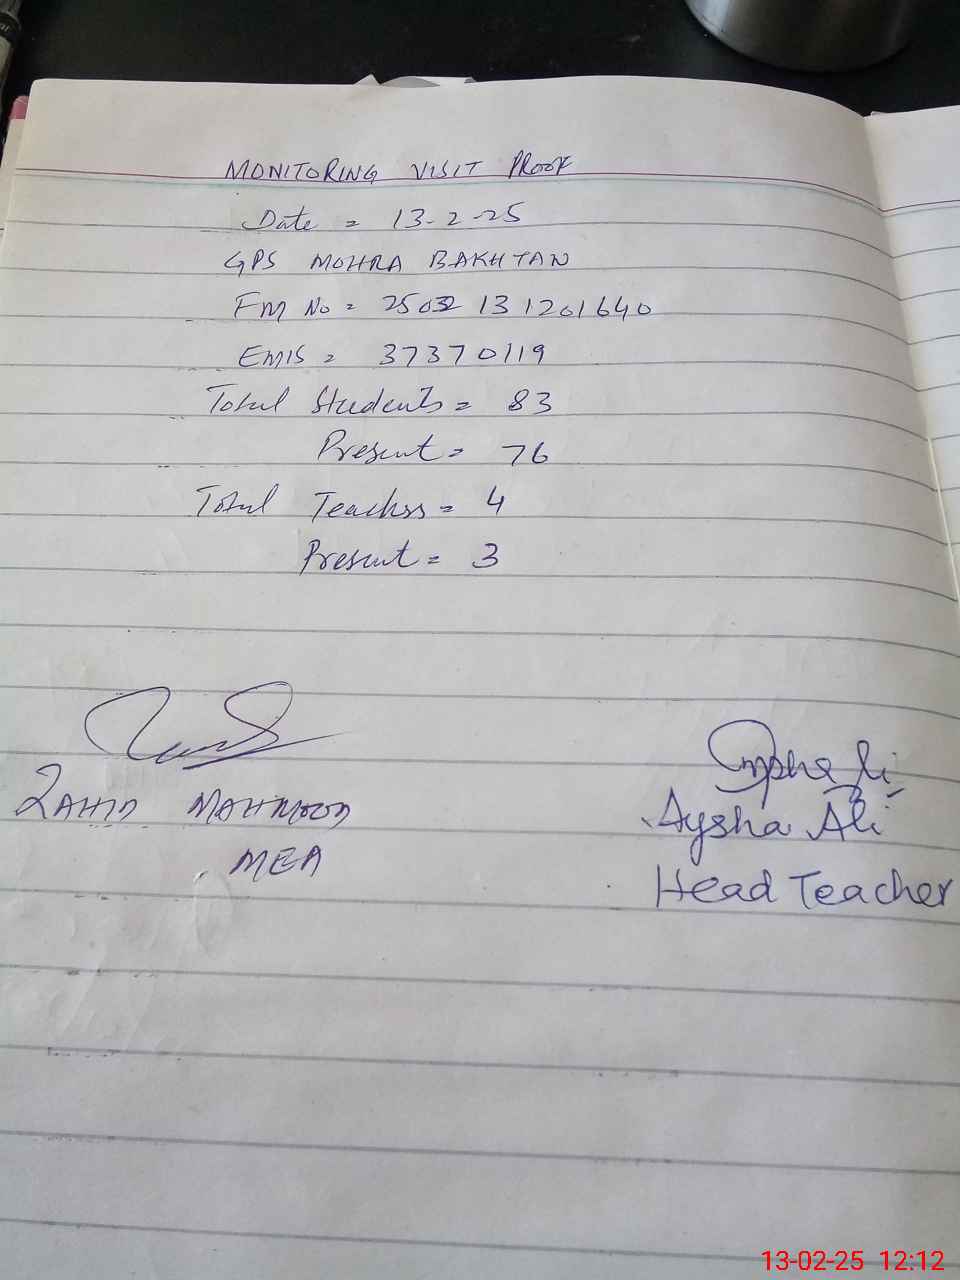 MONITORING VISIT PROOF
Date = 13-2-25
GPS MOHRA BAKHTAN
FM No = 131201640
EMIS = 37370119
Total Students = 83
Present = 76
Total Teachss = 4
Present = 3
ZAHID MAHMOOD
MEA
Aysha Ali
Head Teacher
13-02-25 12:12